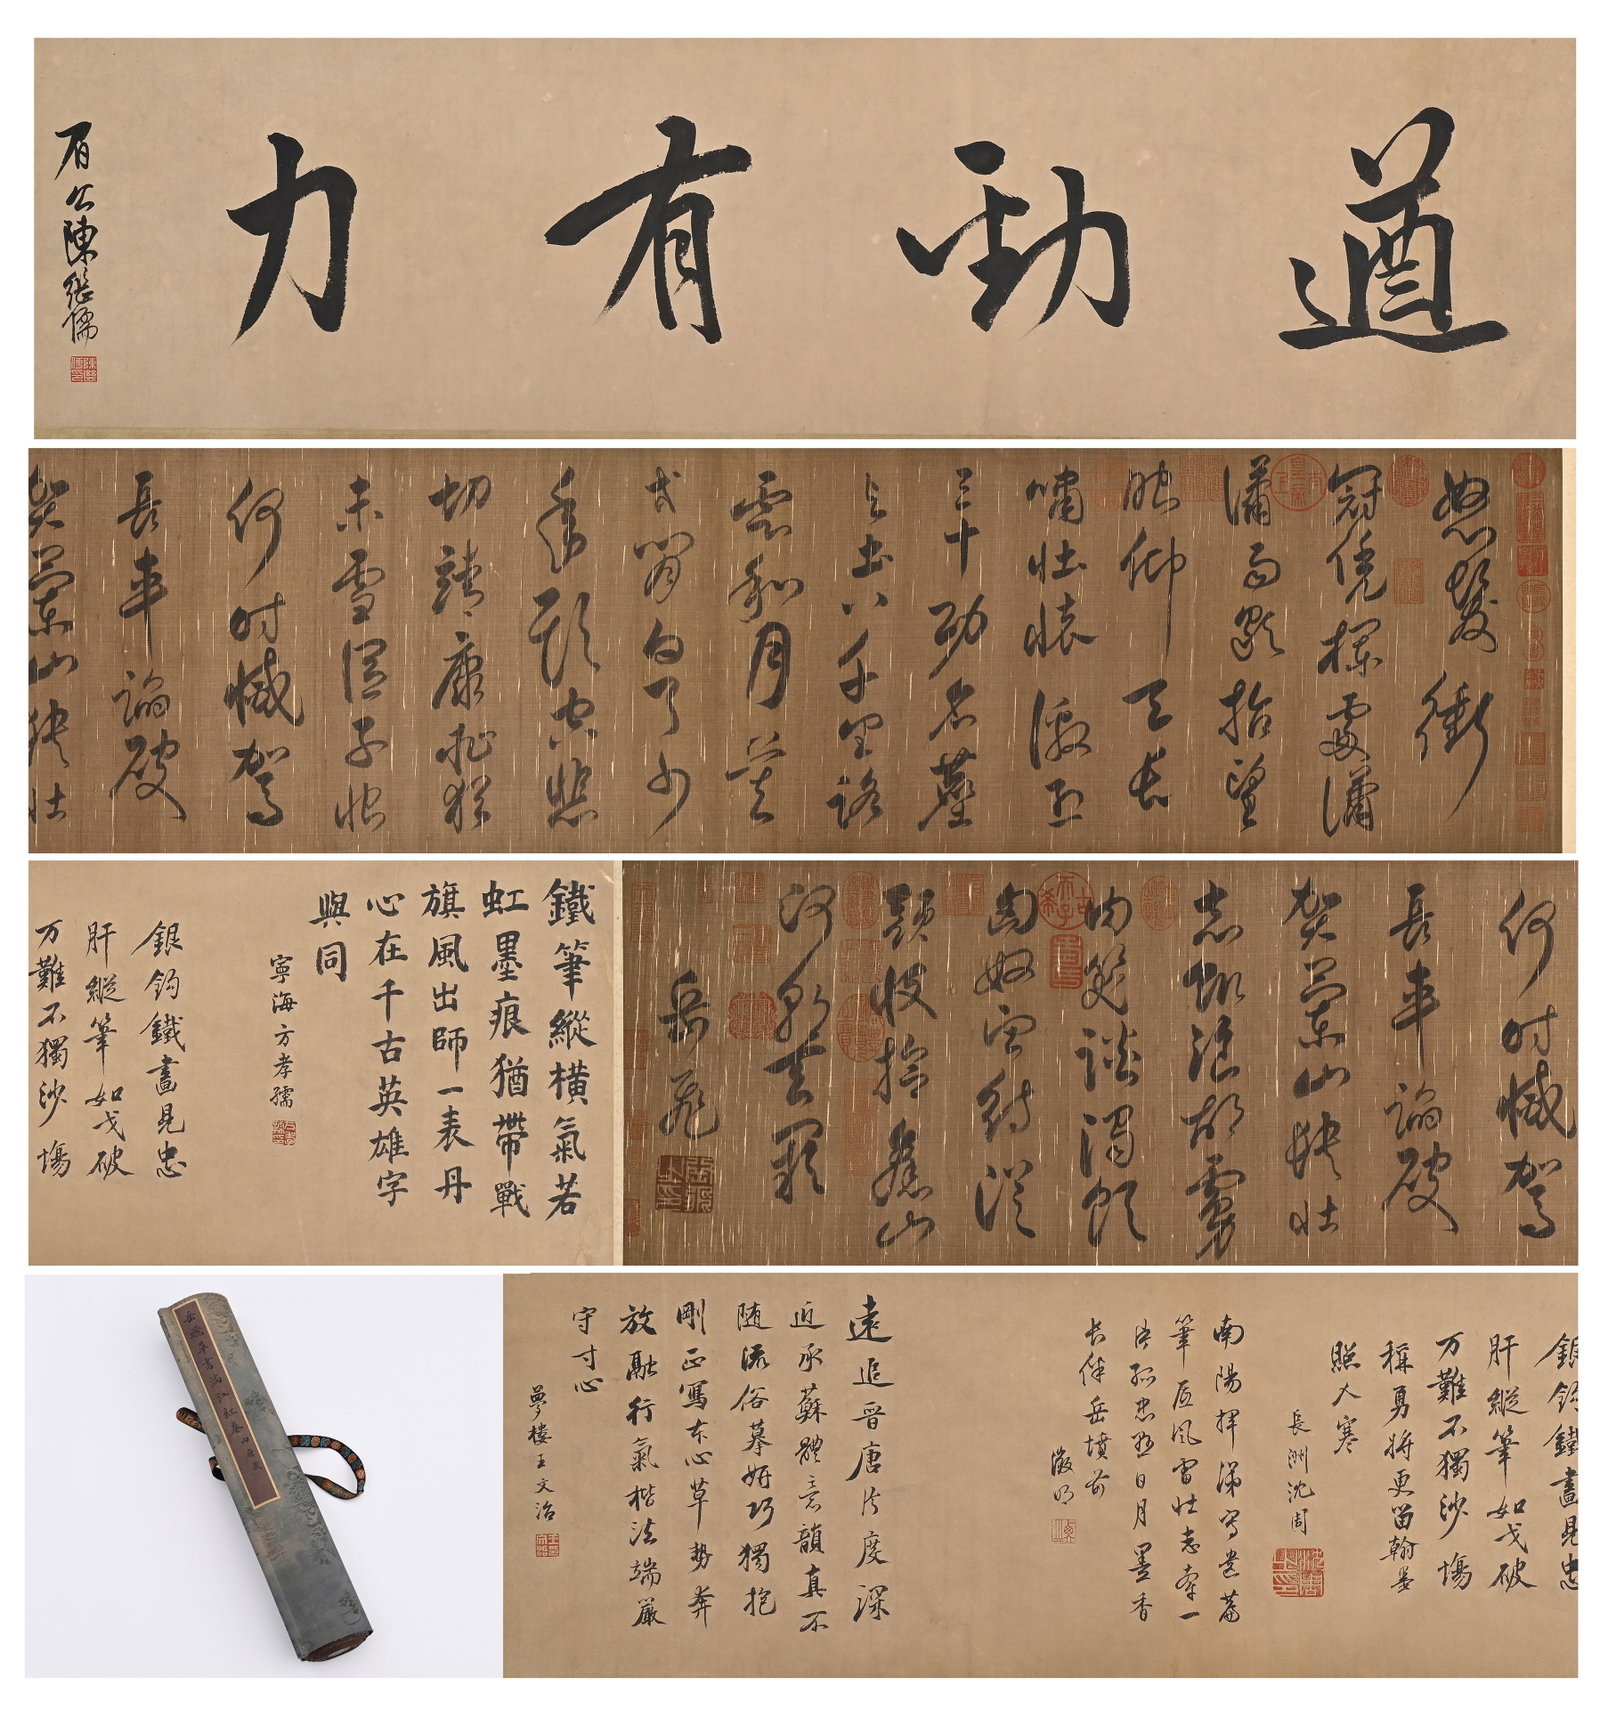 遒勁有力
眉公陳繼儒
怒髮衝
冠凭欄處瀟
瀟雨歇抬望
眼仰天長
嘯壮懷激烈
三十功名塵
与土八千里路
雲和月莫
等閑白了少
年頭空悲
切靖康恥猶
未雪臣子恨
何時憾駕
長車踏破
賀蘭山缺壮
何時憾駕
長車踏破
賀蘭山缺壮
志飢湌胡虜
肉笑談渴飲
匈奴血待從
頭收拾舊山
河朝天闕
岳飛
鐵筆縱橫氣若
虹墨痕猶帶戰
旗風出師一表丹
心在千古英雄字
與同
寧海方孝孺
銀鈎鐵畫見忠
肝縱筆如戈破
万難不獨沙場
銀鈎鐵畫見忠
肝縱筆如戈破
万難不獨沙場
稱勇將更留翰墨
照人寒
長洲沈周
南陽揮涕寫篇
筆底風雷壮志牽一
片孤忠照日月墨香
長伴岳墳前
徵明
遠追晉唐法度深
近承蘇體意韻真不
随流俗摹妍巧獨抱
剛正寫本心草勢奔
放融行氣楷法端嚴
守寸心
夢樓王文治
岳飛草書滿江紅卷